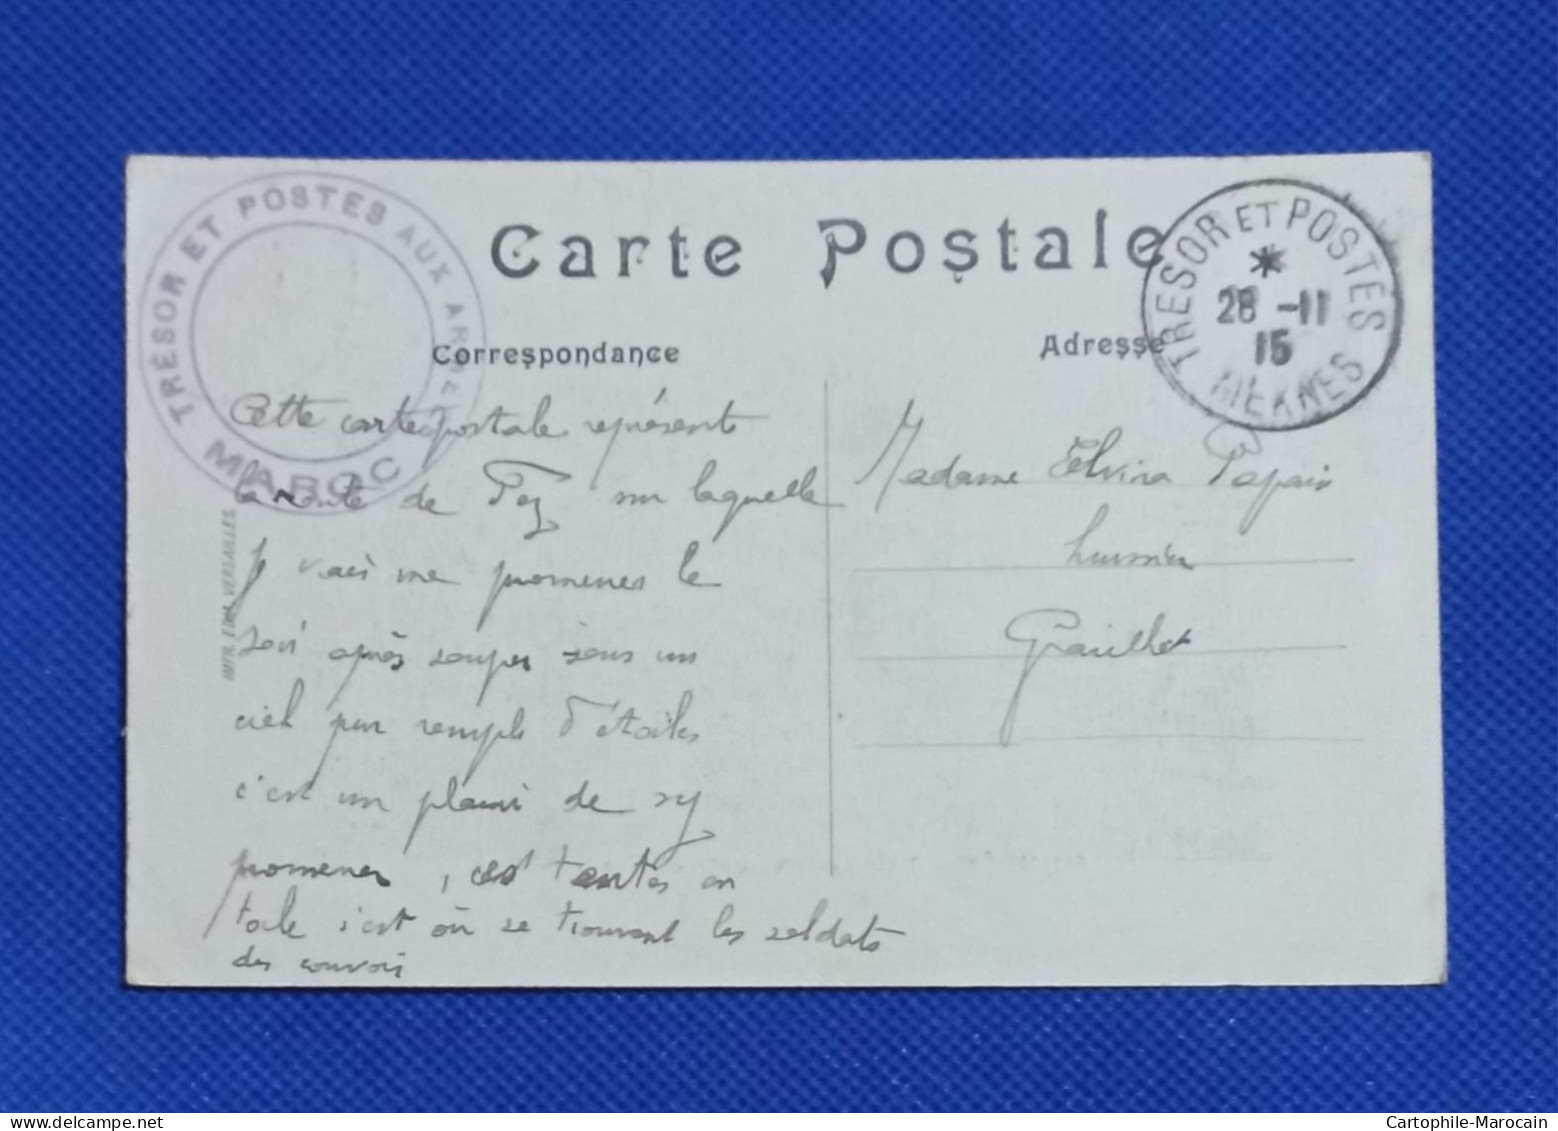 TRÉSOR ET POSTES AUX ARMÉES
MAROC
Carte Postale
TRESOR ET POSTES
*
28 -11
15
MEKNES
Correspondance
Adresse
Cette carte postale représente
la route de Fez sur laquelle
je vais me promener le
soir après souper sous un
ciel pur remple d'étoiles
c'est un plaisir de s'y
promener, ces tentes en
toile c'est où se trouvent les soldats
des convois
Madame Elvira Papaix
huissier
Graulhet
IMPR. EDIA VERSAILLES.
www.delcampe.net
Cartophile-Marocain